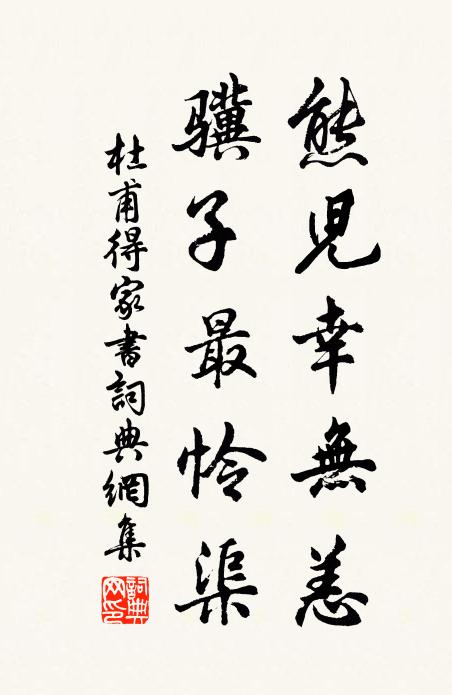 熊児幸無恙
驥子最怜渠
杜甫得家書詞典網集
詞典網印